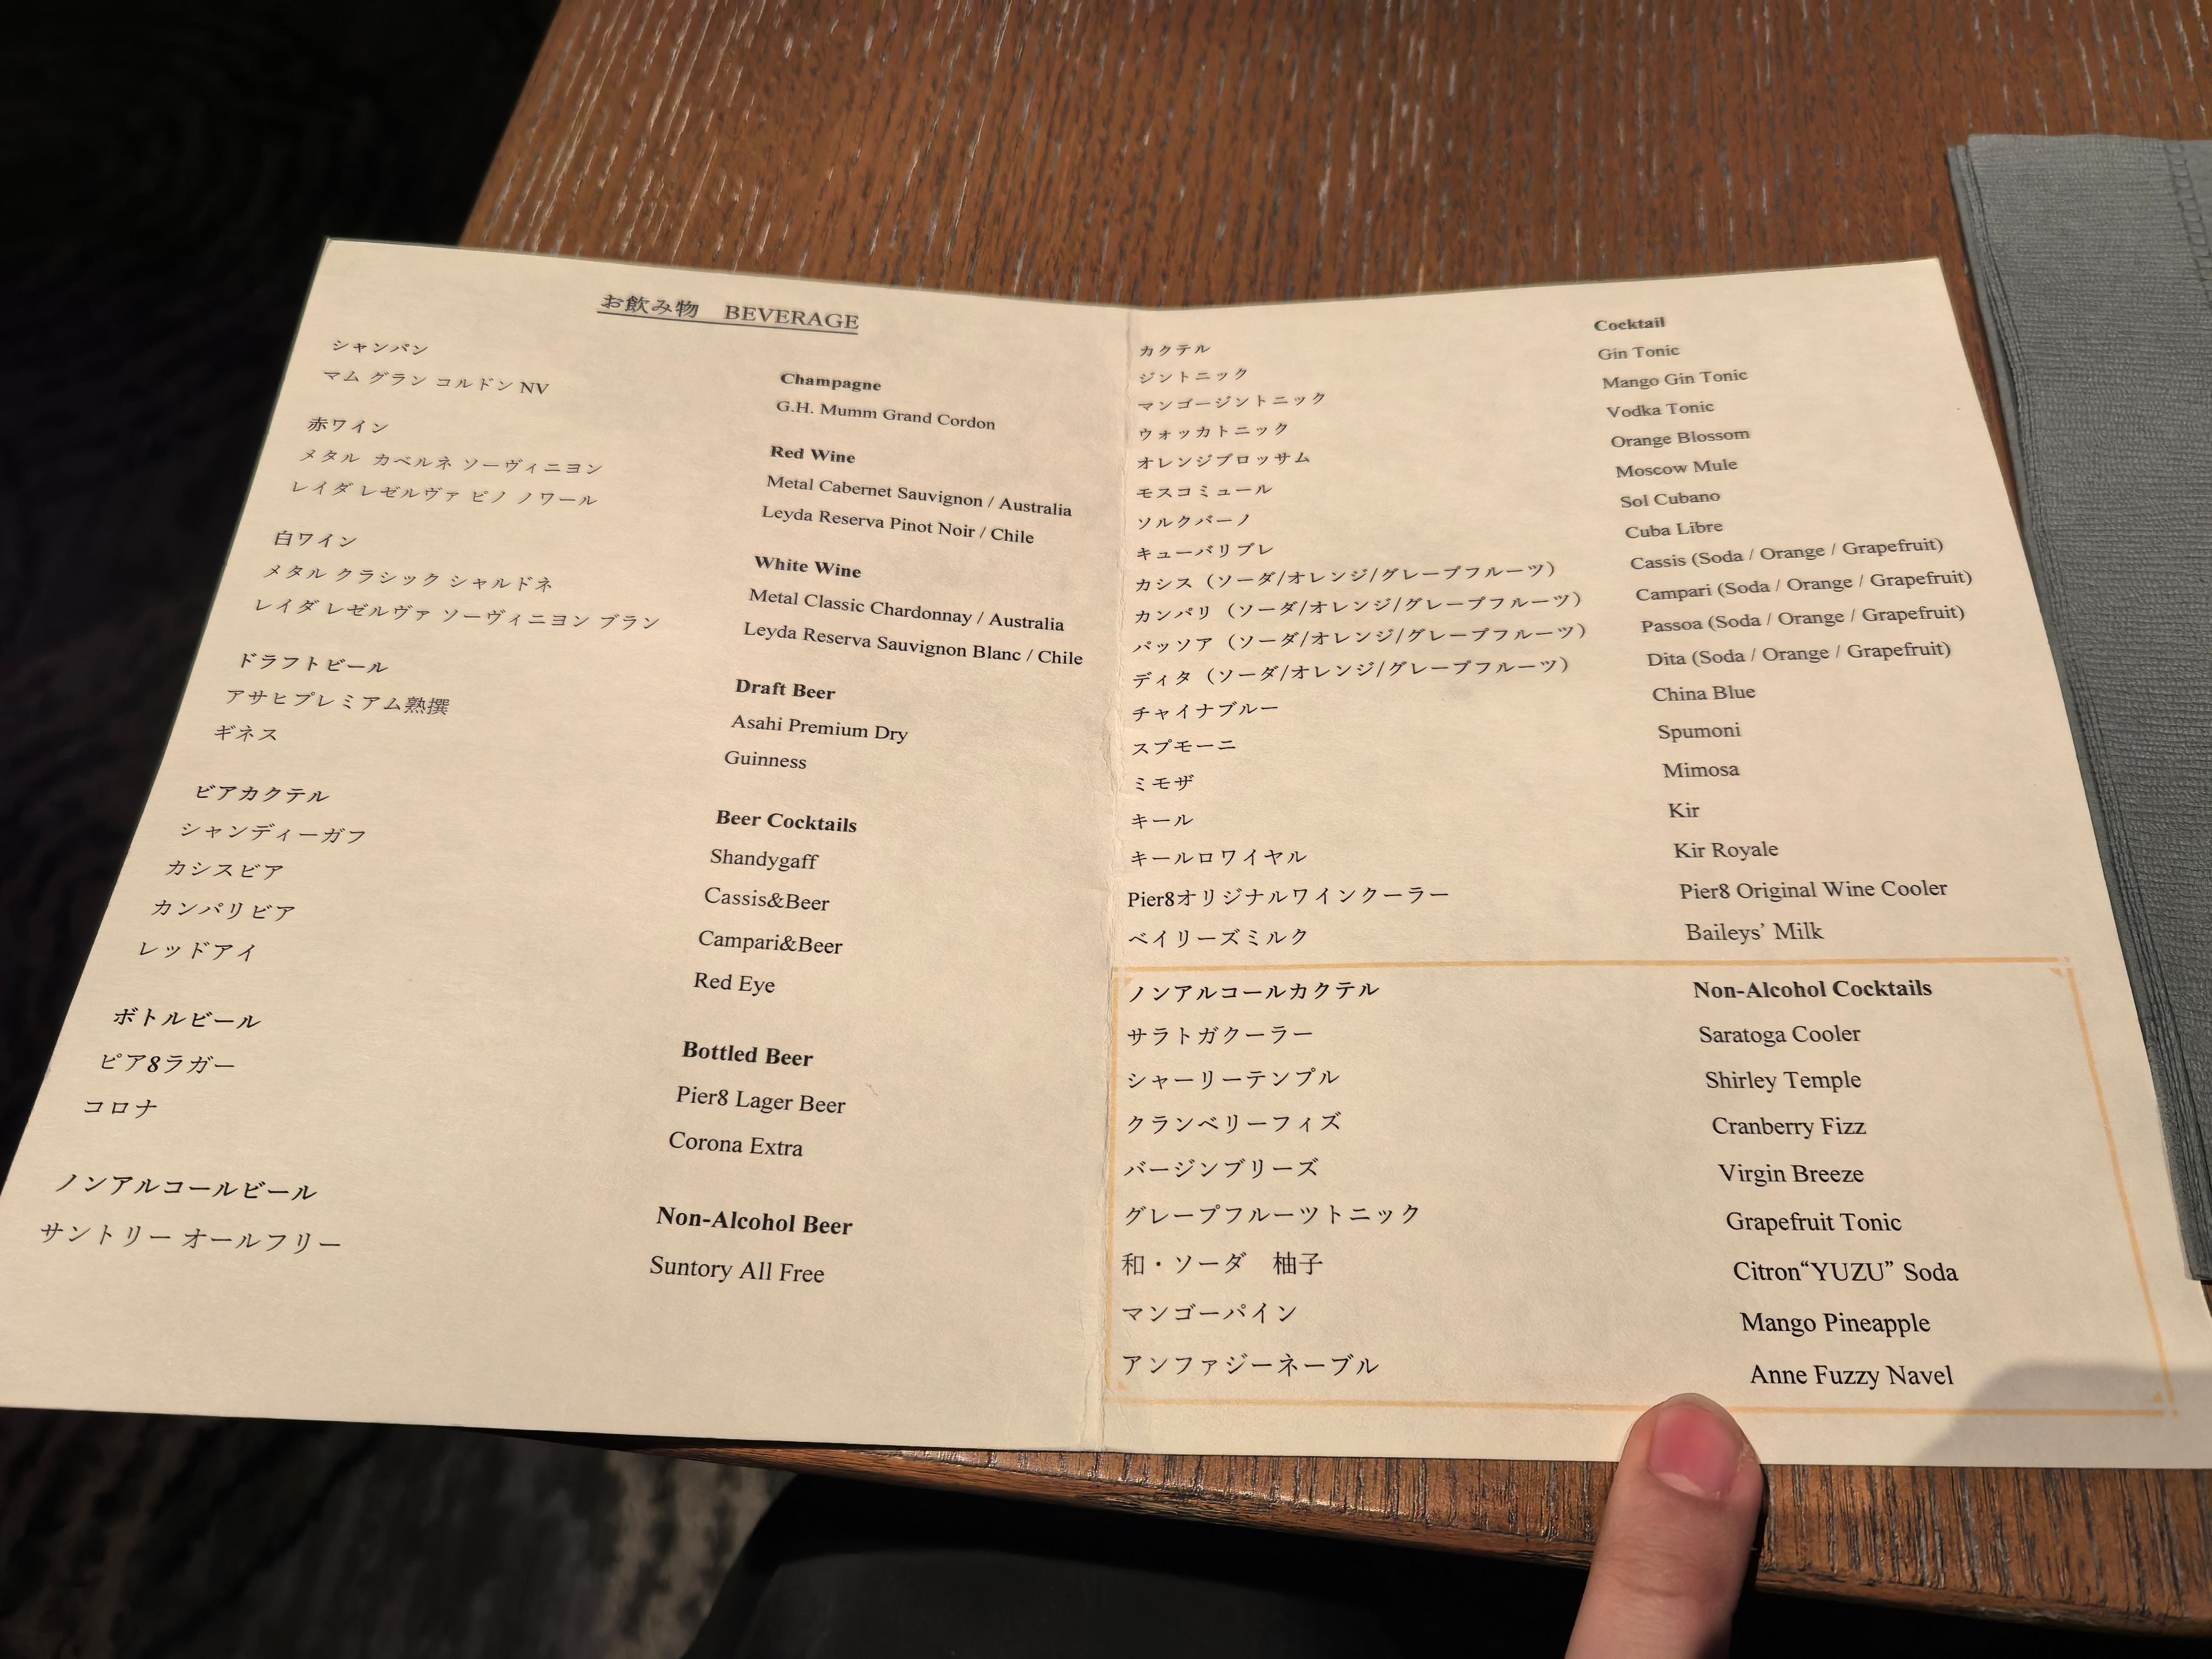 お飲み物 BEVERAGE
シャンパン
Champagne
マム グラン コルドン NV
G.H. Mumm Grand Cordon
赤ワイン
Red Wine
メタル カベルネ ソーヴィニヨン
Metal Cabernet Sauvignon / Australia
レイダ レゼルヴァ ピノ ノワール
Leyda Reserva Pinot Noir / Chile
白ワイン
White Wine
メタル クラシック シャルドネ
Metal Classic Chardonnay / Australia
レイダ レゼルヴァ ソーヴィニヨン ブラン
Leyda Reserva Sauvignon Blanc / Chile
ドラフトビール
Draft Beer
アサヒプレミアム熟撰
Asahi Premium Dry
ギネス
Guinness
ビアカクテル
Beer Cocktails
シャンディーガフ
Shandygaff
カシスビア
Cassis&Beer
カンパリビア
Campari&Beer
レッドアイ
Red Eye
ボトルビール
Bottled Beer
ピア8ラガー
Pier8 Lager Beer
コロナ
Corona Extra
ノンアルコールビール
Non-Alcohol Beer
サントリー オールフリー
Suntory All Free
カクテル
Cocktail
ジントニック
Gin Tonic
マンゴージントニック
Mango Gin Tonic
ウォッカトニック
Vodka Tonic
オレンジブロッサム
Orange Blossom
モスコミュール
Moscow Mule
ソルクバーノ
Sol Cubano
キューバリブレ
Cuba Libre
カシス（ソーダ/オレンジ/グレープフルーツ）
Cassis (Soda / Orange / Grapefruit)
カンパリ（ソーダ/オレンジ/グレープフルーツ）
Campari (Soda / Orange / Grapefruit)
パッソア（ソーダ/オレンジ/グレープフルーツ）
Passoa (Soda / Orange / Grapefruit)
ディタ（ソーダ/オレンジ/グレープフルーツ）
Dita (Soda / Orange / Grapefruit)
チャイナブルー
China Blue
スプモーニ
Spumoni
ミモザ
Mimosa
キール
Kir
キールロワイヤル
Kir Royale
Pier8オリジナルワインクーラー
Pier8 Original Wine Cooler
ベイリーズミルク
Baileys’ Milk
ノンアルコールカクテル
Non-Alcohol Cocktails
サラトガクーラー
Saratoga Cooler
シャーリーテンプル
Shirley Temple
クランベリーフィズ
Cranberry Fizz
バージンブリーズ
Virgin Breeze
グレープフルーツトニック
Grapefruit Tonic
和・ソーダ 柚子
Citron“YUZU” Soda
マンゴーパイン
Mango Pineapple
アンファジーネーブル
Anne Fuzzy Navel